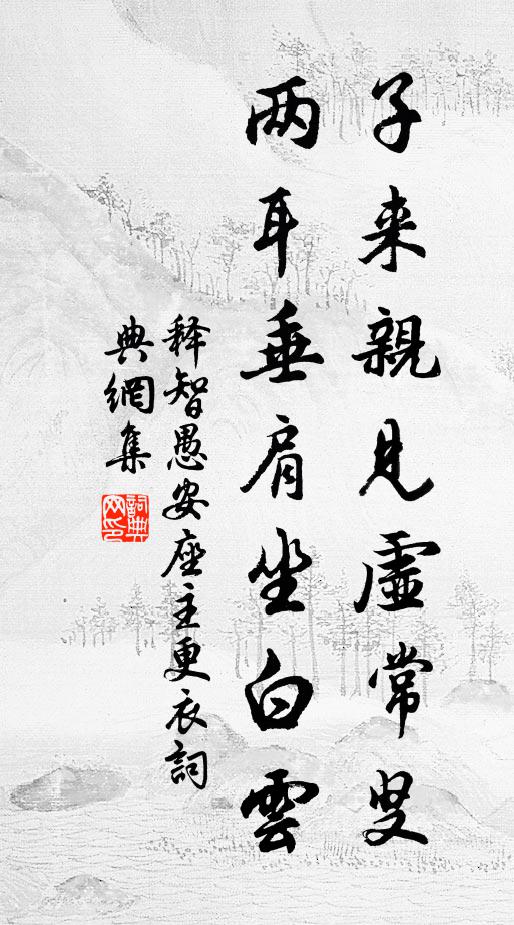 子来親見虛常叟
两耳垂肩坐白雲
释智愚安座主更衣詞
典網集
詞典網印